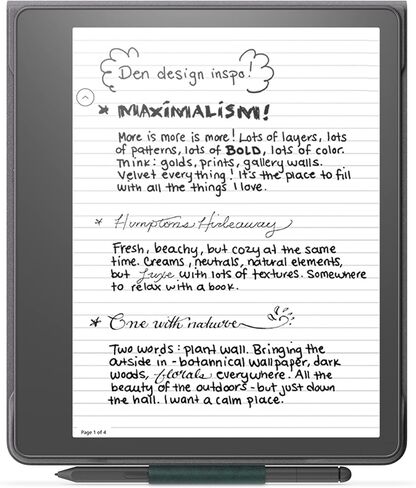 Den design inspo!
* MAXIMALISM!
More is more is more! Lots of layers, lots
of patterns, lots of BOLD, lots of color.
Think: golds, prints, gallery walls.
Velvet everything! It's the place to fill
with all the things I love.
* Hamptons Hideaway
Fresh, beachy, but cozy at the same
time. Creams, neutrals, natural elements,
but luxe with lots of textures. Somewhere
to relax with a book.
* One with nature
Two words: plant wall. Bringing the
outside in - botannical wallpaper, dark
woods, florals everywhere. All the
beauty of the outdoors - but just down
the hall. I want a calm place.
Page 1 of 4